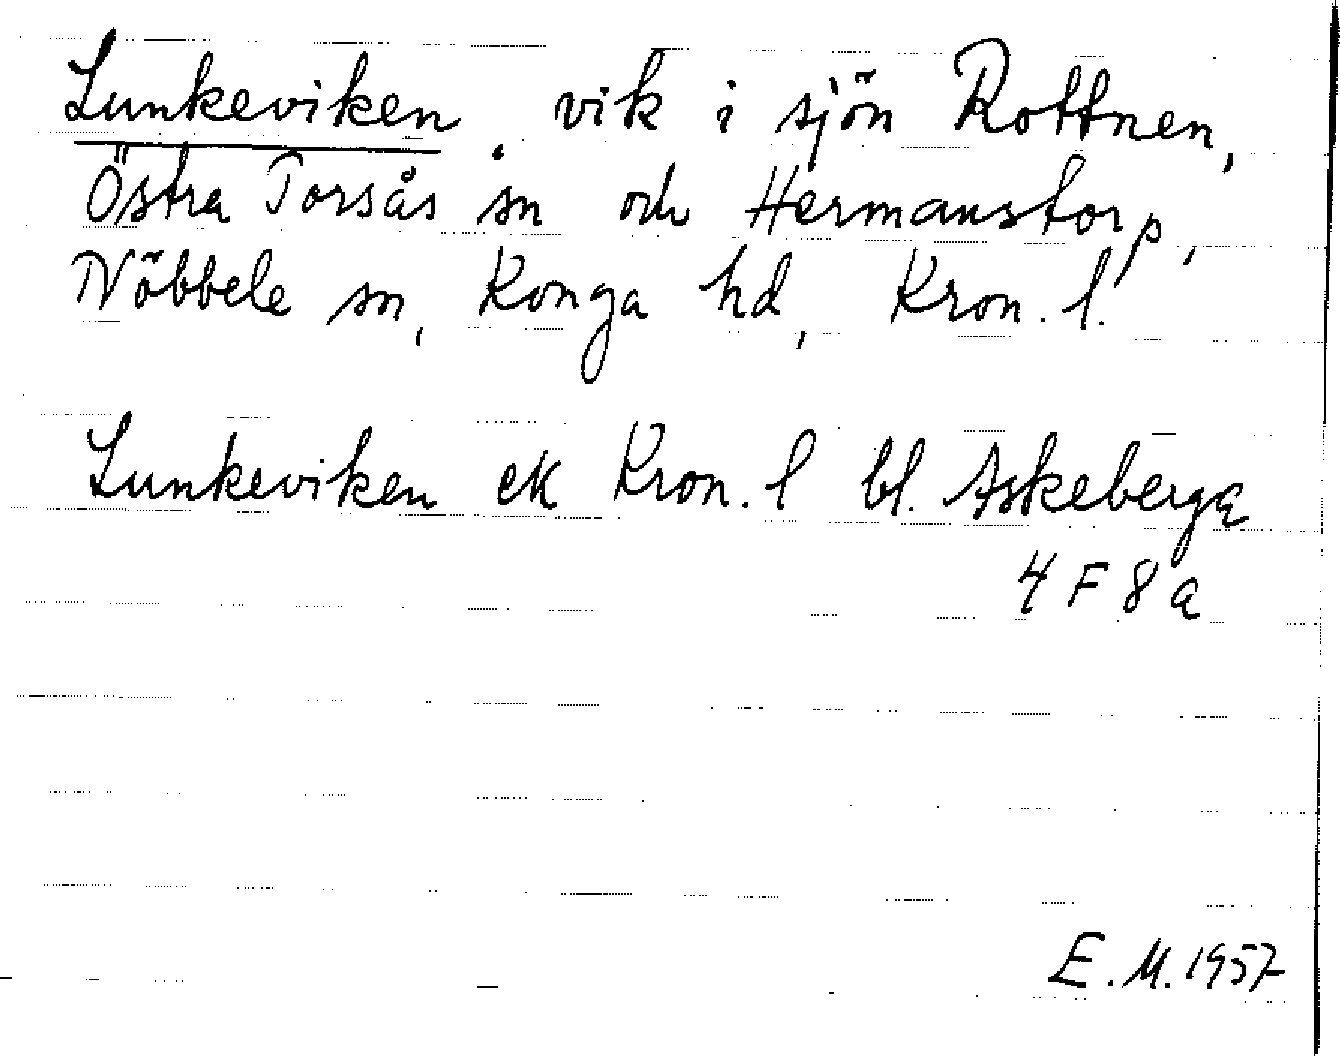 Lunkeviken, vik i sjön Rottnen,
Östra Torsås sn och Hermanstorp,
Nöbbele sn, Konga hd, Kron. l.
Lunkeviken ek Kron. l bl. Askeberga
4 F 8 a
E. M. 1957